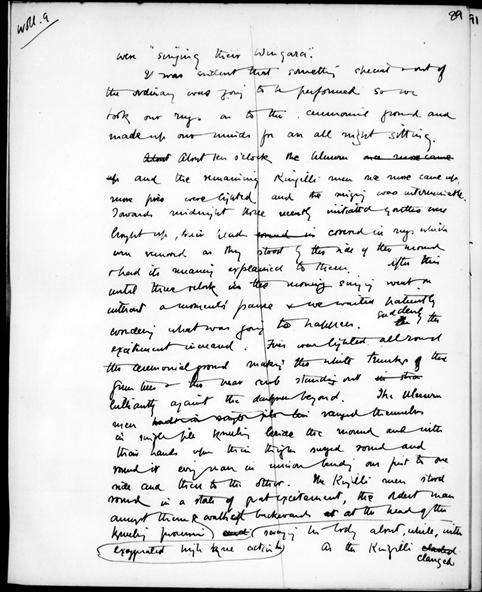 Woll. 9
89
91
were "singing their Wingara".
It was evident that something special & out of
the ordinary was going to be performed so we
took our rugs on to the ceremonial ground and
made up our minds for an all night sitting.
About ten o'clock the Uluuru once more came
up and the remaining Kingilli men once more came up,
more fires were lighted and the singing was interminable.
Towards midnight three recently initiated youths were
brought up, their heads covered in rugs which
were removed as they stood by the side of the mound
& had its meaning explained to them. After this
until three o'clock in the morning singing went on
without a moment's pause & we waited patiently
wondering what was going to happen. Suddenly the
excitement increased. Fires were lighted all round
the ceremonial ground making the white trunks of the
gum trees & the near scrub standing out
brilliantly against the darkness beyond. The Uluuru
men ranged themselves
in single file kneeling beside the mound and with
their hands upon their thighs surged round and
round it every man in unison bending over first to one
side and then to the other. The Kingilli men stood
round in a state of great excitement, the oldest man
amongst them walked backwards at the head of the
kneeling procession swaying his body about, while, with
exaggerated high knee activity As the Kingilli
changed